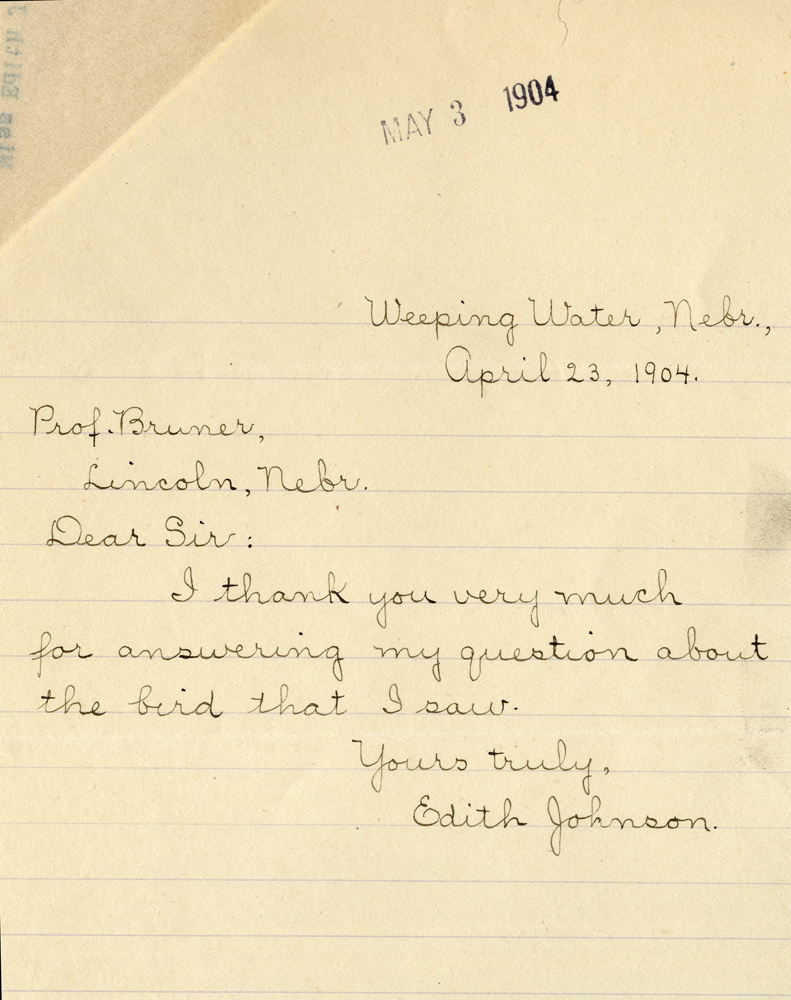 Miss Edith J
MAY 3 1904
Weeping Water, Nebr.,
April 23, 1904.
Prof. Bruner,
Lincoln, Nebr.
Dear Sir:
I thank you very much
for answering my question about
the bird that I saw.
Yours truly,
Edith Johnson.